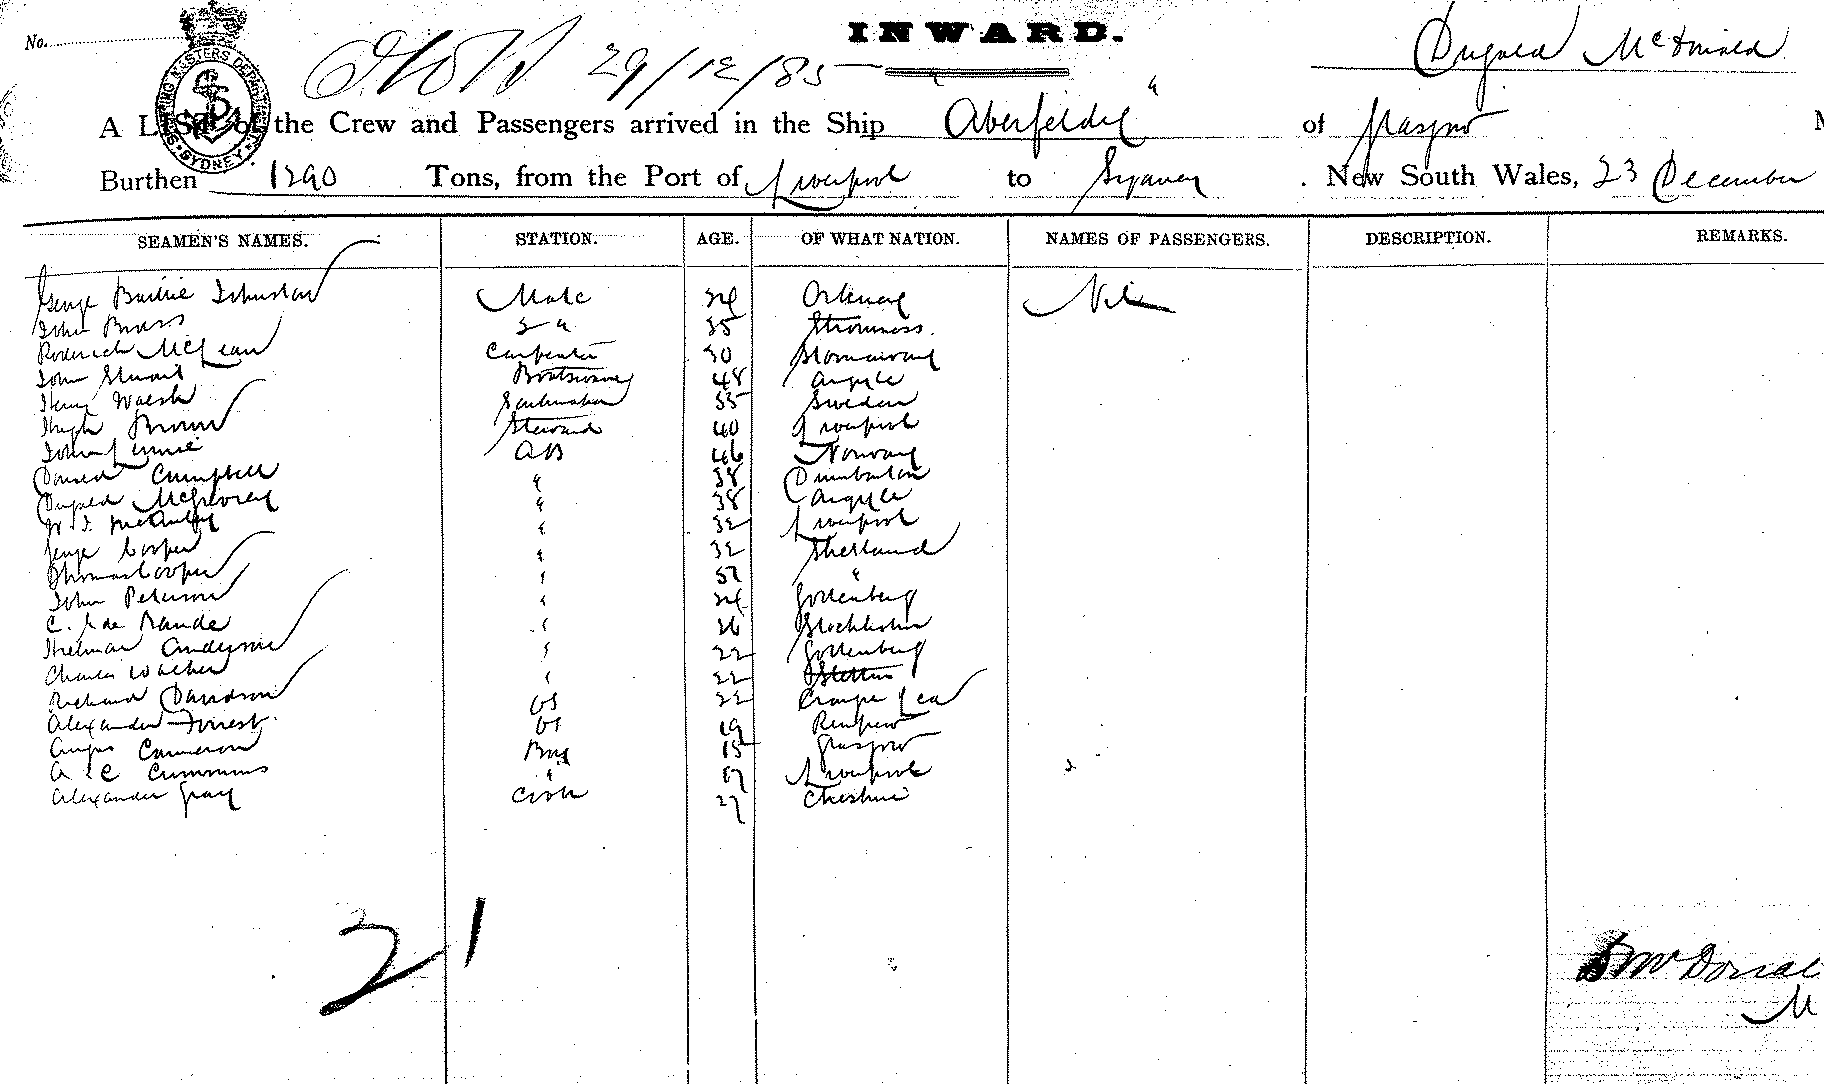 No.
SHIPPING MASTERS DEPARTMENT SYDNEY
29/12/85
INWARD.
Dugald McDonald
A LIST of the Crew and Passengers arrived in the Ship "Aberfeldy" of Glasgow
Burthen 1290 Tons, from the Port of Liverpool to Sydney. New South Wales, 23 December
SEAMEN'S NAMES. STATION. AGE. OF WHAT NATION. NAMES OF PASSENGERS. DESCRIPTION. REMARKS.
George Baikie Johnston Mate 24 Orkney Nil
John Brass 2" 35 Stromness.
Roderick McLean Carpenter 30 Stornoway
John Stewart Boatswain 48 Argyle
Henry Walsh Sailmaker 55 Sweden
Hugh Brown Steward 40 Liverpool
John AB 46 Norway
Donald Campbell " 38 Dumbarton
Dugald McGilvray " 38 Argyle
W. J. McAuley " 32 Liverpool
George Cooper " 32 Shetland
Thomas Cooper " "
John Peterson " 24 Gottenberg
C. J. de " 26 Stockholm
Anderson " 22 Gottenberg
Charles " 22 Stettin
Richard Davidson OS 22
Alexander Forrest OS 19 Renfrew
Angus Cameron Boy 15 Glasgow
A C Cummins " 17 Liverpool
Alexander Gray Cook 27 Cheshire
21
D McDonal
M